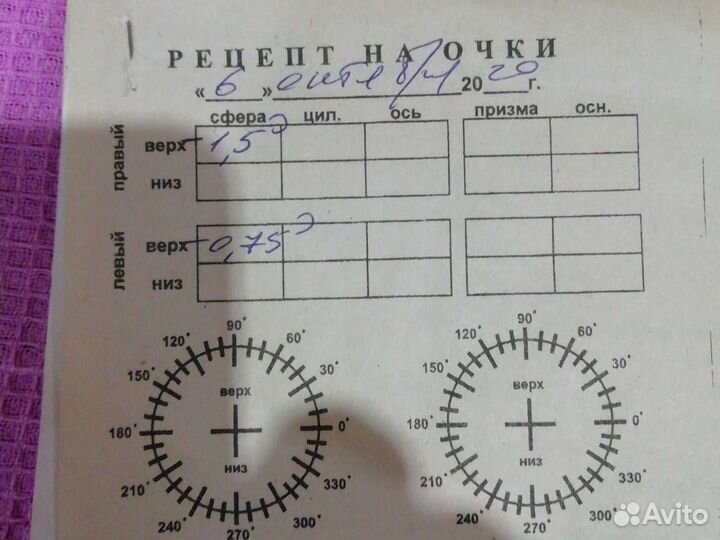 РЕЦЕПТ НА ОЧКИ
« 6 » октября 20 20 г.
сфера цил. ось призма осн.
правый
верх -1,5
низ
левый
верх -0,75
низ
90° 90°
120° 60° 120° 60°
150° 30° 150° 30°
верх верх
180° 0° 180° 0°
низ низ
210° 330° 210° 330°
240° 300° 240° 300°
270° 270°
Avito